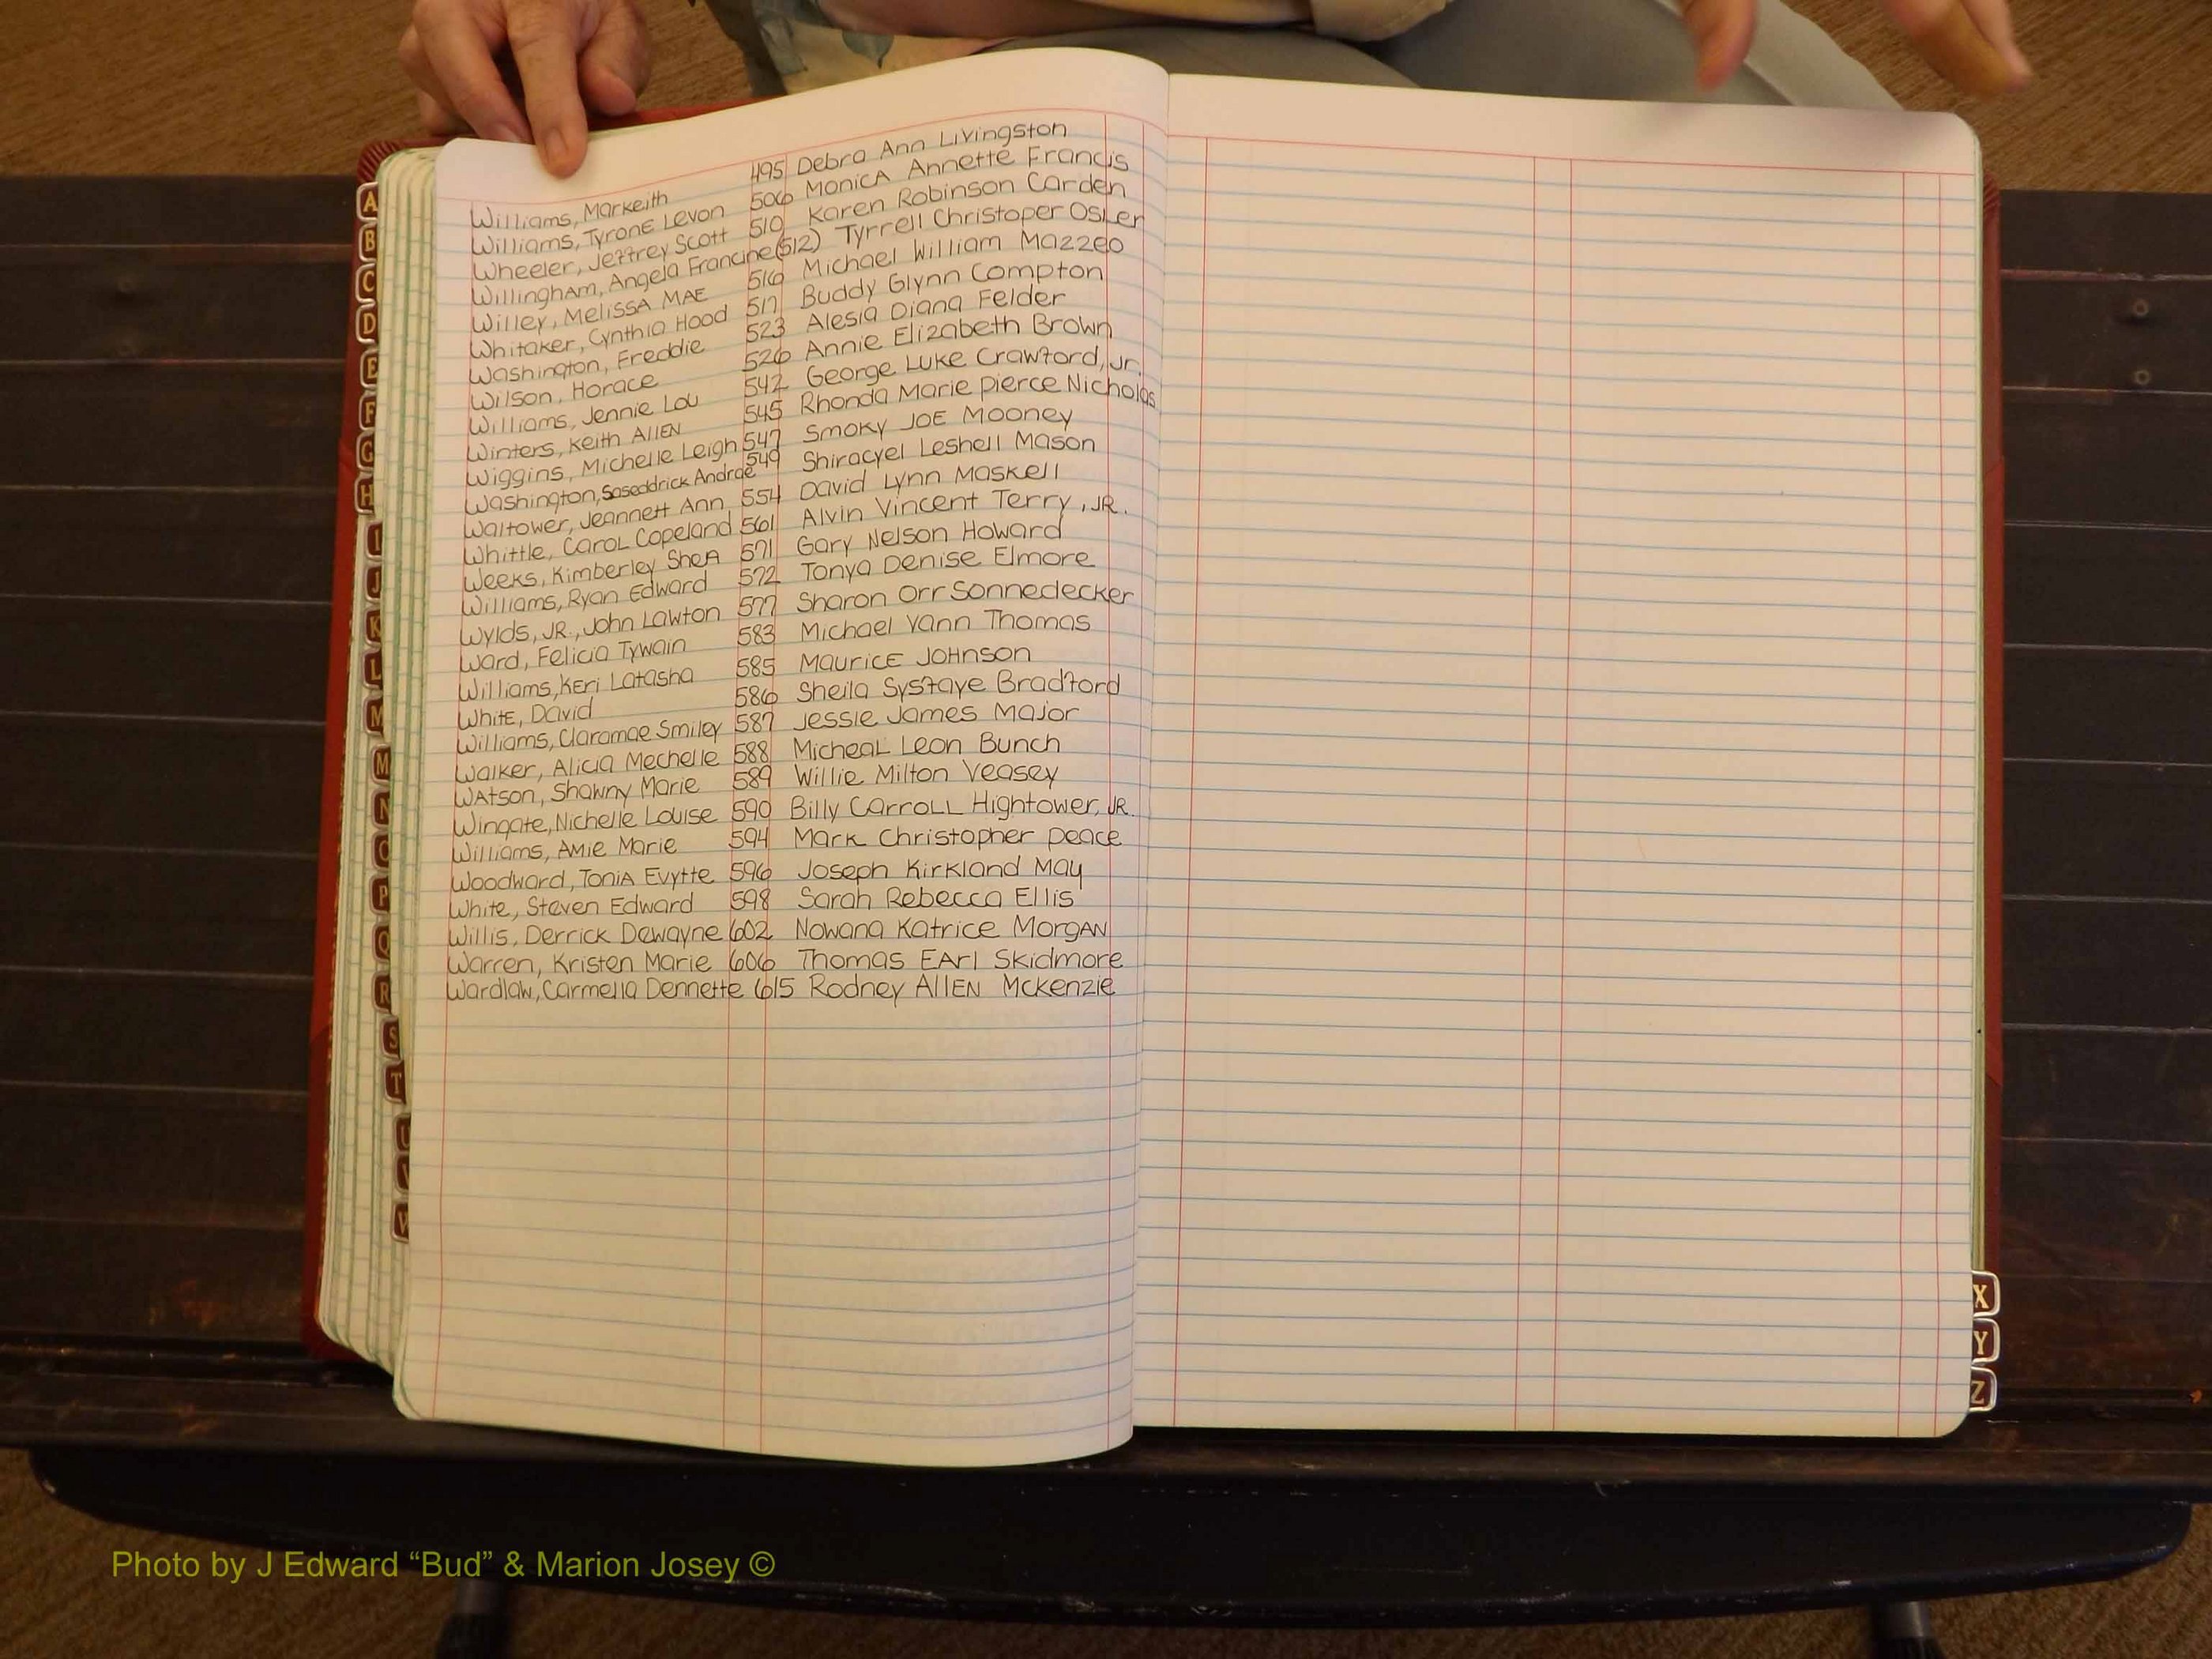 Williams, Markeith 495 Debra Ann Livingston
Williams, Tyrone Levon 506 Monica Annette Francis
Wheeler, Jeffrey Scott 510 Karen Robinson Carden
Willingham, Angela Francine (512) Tyrrell Christoper Osler
Willey, Melissa Mae 516 Michael William Mazzeo
Whitaker, Cynthia Hood 517 Buddy Glynn Compton
Washington, Freddie 523 Alesia Diana Felder
Wilson, Horace 526 Annie Elizabeth Brown
Williams, Jennie Lou 542 George Luke Crawford, Jr.
Winters, Keith Allen 545 Rhonda Marie Pierce Nicholas
Wiggins, Michelle Leigh 547 Smoky Joe Mooney
Washington, Saseddrick Andrae 549 Shiracyel Leshell Mason
Waltower, Jeannett Ann 554 David Lynn Maskell
Whittle, Carol Copeland 561 Alvin Vincent Terry, Jr.
Weeks, Kimberley Shea 571 Gary Nelson Howard
Williams, Ryan Edward 572 Tonya Denise Elmore
Wylds, Jr., John Lawton 577 Sharon Orr Sonnedecker
Ward, Felicia Tywain 583 Michael Vann Thomas
Williams, Keri Latasha 585 Maurice Johnson
White, David 586 Sheila Systaye Bradford
Williams, Claramae Smiley 587 Jessie James Major
Walker, Alicia Mechelle 588 Micheal Leon Bunch
Watson, Shawny Marie 589 Willie Milton Veasey
Wingate, Nichelle Louise 590 Billy Carroll Hightower, Jr.
Williams, Amie Marie 594 Mark Christopher Peace
Woodward, Tonia Evytte 596 Joseph Kirkland May
White, Steven Edward 598 Sarah Rebecca Ellis
Willis, Derrick Dewayne 602 Nowana Katrice Morgan
Warren, Kristen Marie 606 Thomas Earl Skidmore
Wardlaw, Carmella Dennette 615 Rodney Allen McKenzie
A
B
C
D
E
F
G
H
I
J
K
L
M
M
N
O
P
Q
R
S
T
U
V
W
X
Y
Z
Photo by J Edward “Bud” & Marion Josey ©